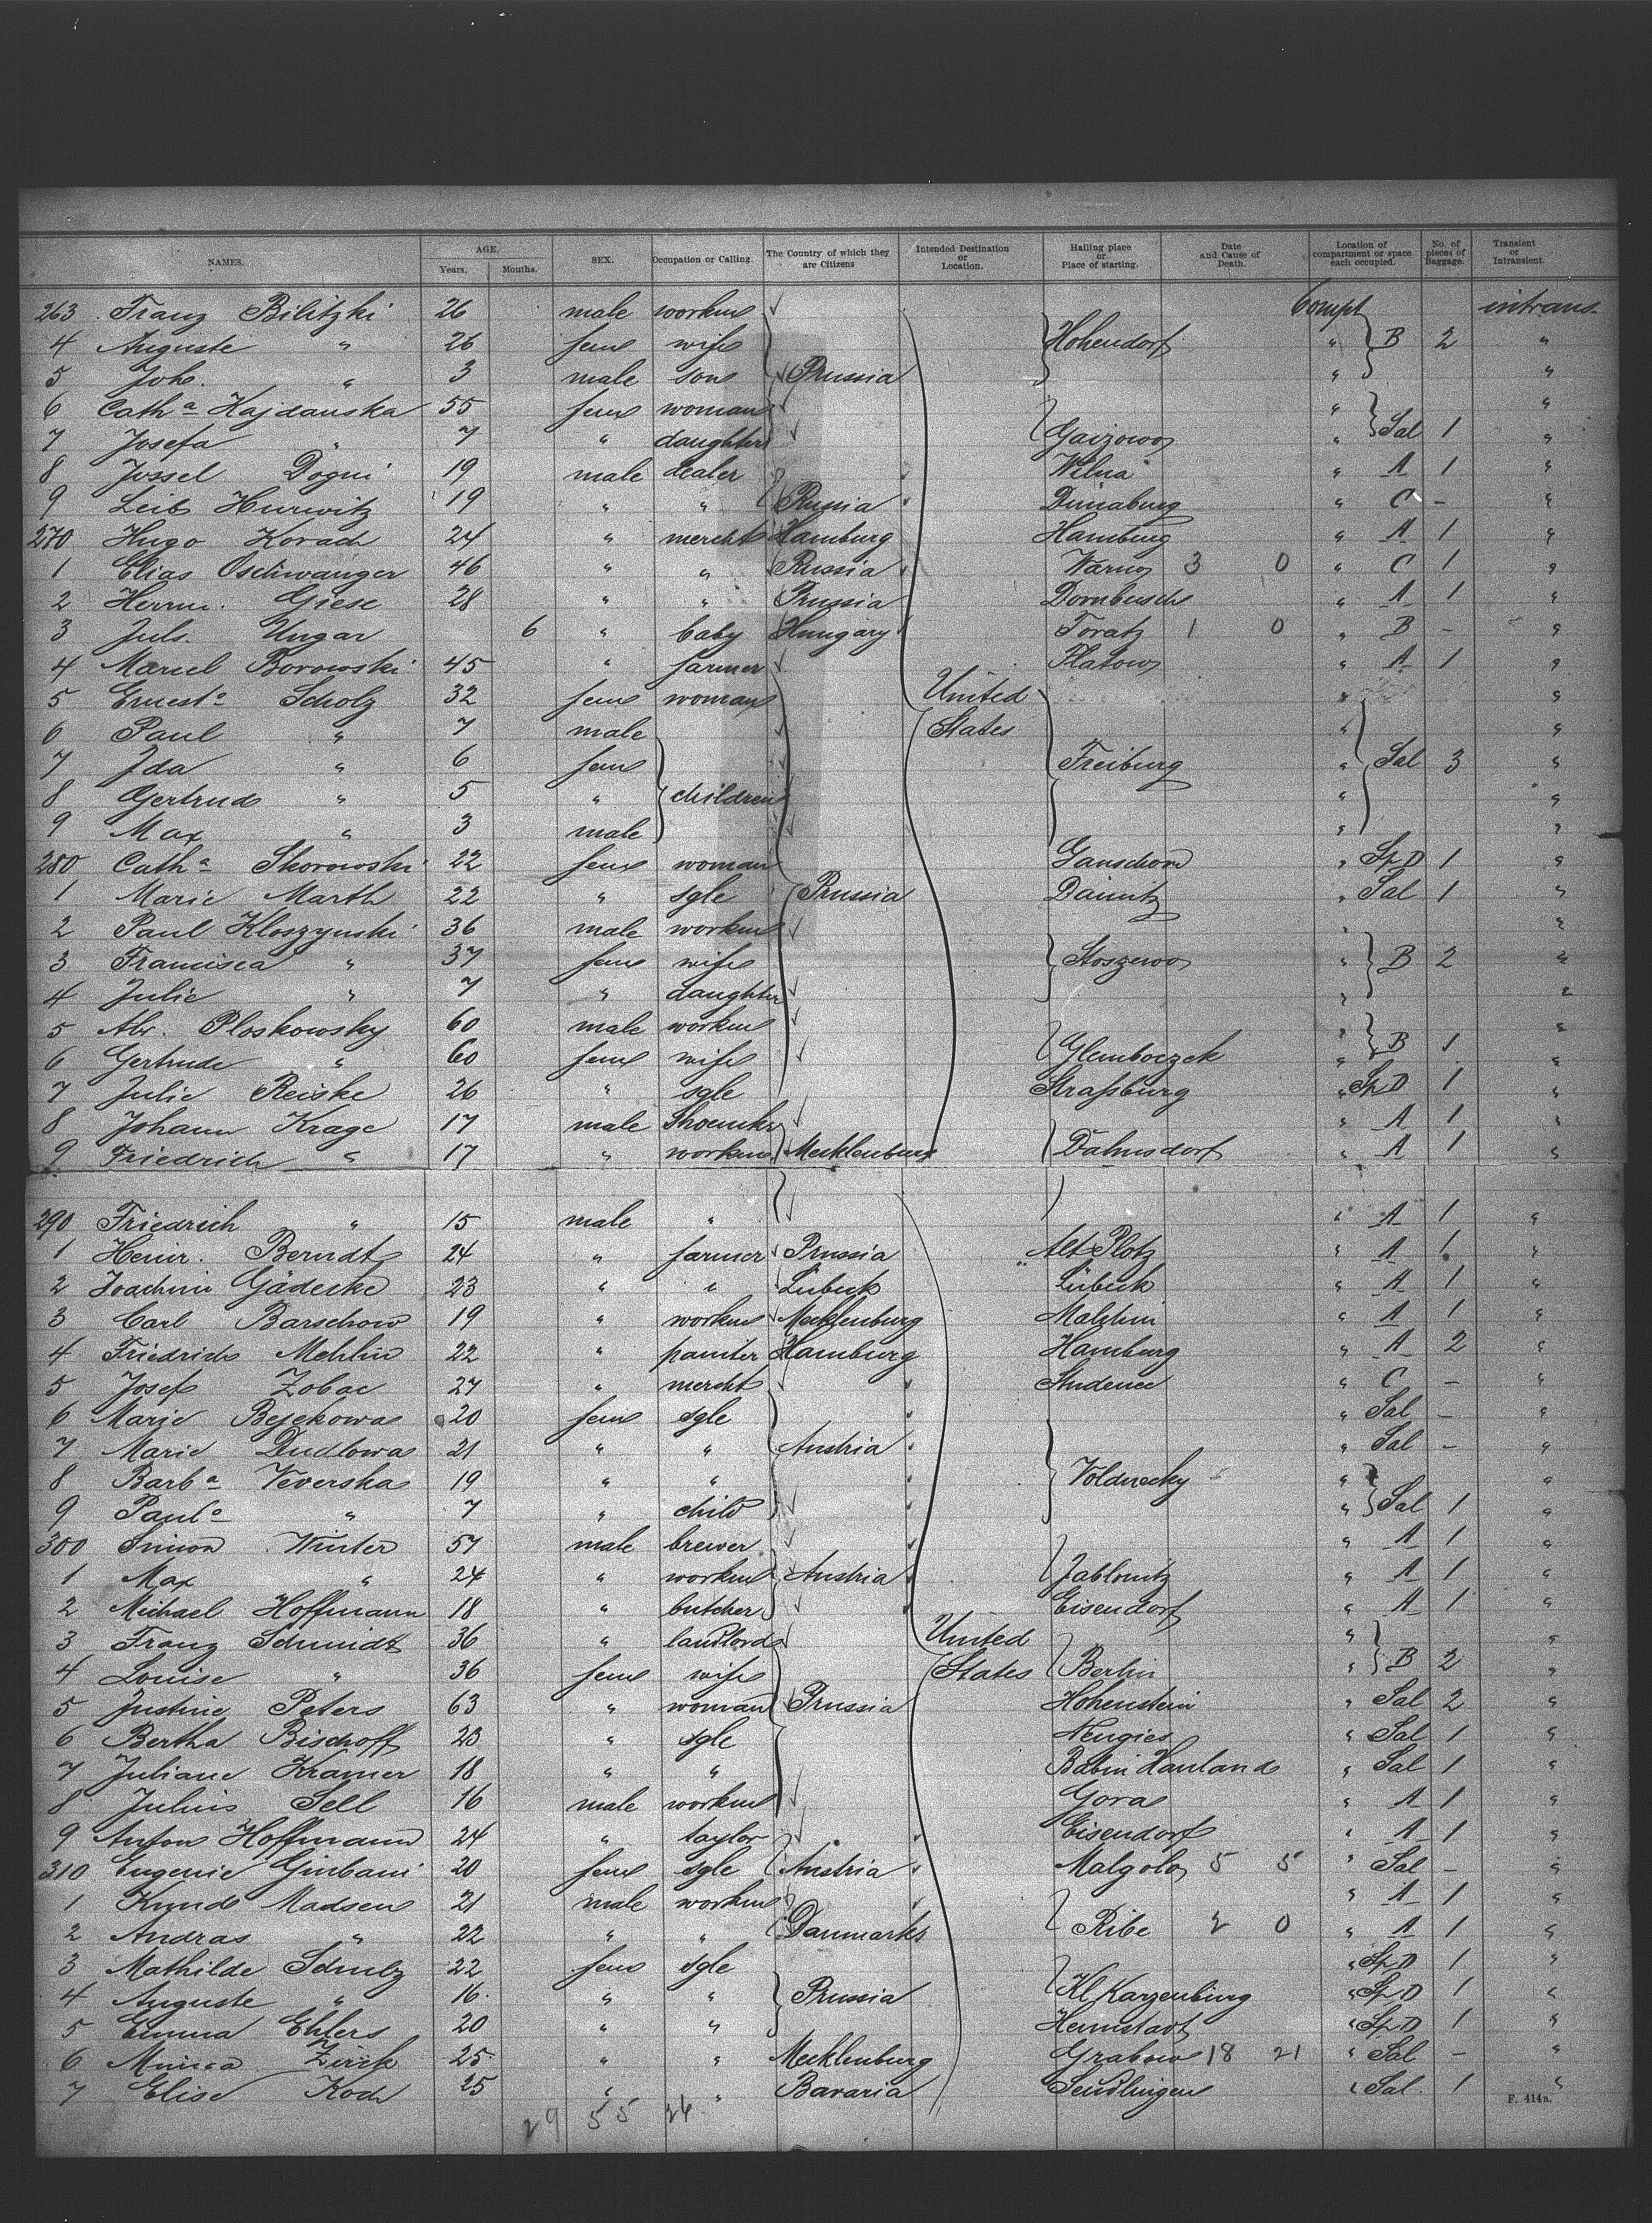 NAMES. AGE. Years. Months. SEX. Occupation or Calling. The Country of which they are Citizens Intended Destination or Location. Hailing place or Place of starting. Date and Cause of Death. Location of compartment or space each occupied. No. of pieces of Baggage. Transient or Intransient.
263 Franz Bilitzki 26 male workm Compt intrans
4 Auguste " 26 fem wife Hohendorf " B 2 "
5 Joh. " 3 male son Prussia " "
6 Cath a Kajdanska 55 fem woman " "
7 Josefa " 7 " daughter " Sal 1 "
8 Jossel 19 male dealer Wilna " A 1 "
9 Leib Hurwitz 19 " " Russia Dünaburg " C - "
270 Hugo Korach 24 " mercht Hamburg Hamburg " A 1 "
1 Elias 46 " " Russia 3 0 " C 1 "
2 Herrm. Giese 28 " " Prussia Dornbusch " A 1 "
3 Juls. Ungar 6 " baby Hungary Toratz 1 0 " B - "
4 Marcel Borowski 45 " farmer Flatow " A 1 "
5 Ernest e Scholz 32 fem woman United " "
6 Paul " 7 male States " "
7 Ida " 6 fem Freiburg " Sal 3 "
8 Gertrud " 5 " children " "
9 Max " 3 male " "
280 Cath a Skorowski 22 fem woman " Sp D 1 "
1 Marie Marth 22 " sgle Prussia " Sal 1 "
2 Paul Kloszynski 36 male workm " "
3 Francisca " 37 fem wife " B 2 "
4 Julie " 7 " daughter " "
5 Ploskowsky 60 male workm " "
6 Gertrude " 60 fem wife Glemboczek " B 1 "
7 Julie Reiske 26 " sgle Straßburg " Sp D 1 "
8 Johann Krage 17 male Shoemkr " A 1 "
9 Friedrich " 17 " workm Mecklenburg Dahmsdorf " A 1 "
290 Friedrich " 15 male " " A 1 "
1 Heinr. Berndt 24 " farmer Prussia Alt Plotz " A 1 "
2 Joachim Gädecke 23 " " Lübeck Lübeck " A 1 "
3 Carl Barschow 19 " workm Mecklenburg Malchin " A 1 "
4 Friedrich Mehlin 22 " painter Hamburg Hamburg " A 2 "
5 Josef Zobac 27 " mercht Studenec " C - "
6 Marie Bejckowa 20 fem sgle " Sal - "
7 Marie Dudlowa 21 " " Austria " Sal - "
8 Barb a Veverska 19 " " " "
9 Paul e " 7 " child " Sal 1 "
300 Simon Winter 57 male brewer " A 1 "
1 Max " 24 " workm Austria Jablonitz " A 1 "
2 Michael Hoffmann 18 " butcher Eisendorf " A 1 "
3 Franz Schmidt 36 " landlord United " "
4 Louise " 36 fem wife States Berlin " B 2 "
5 Justine Peters 63 " woman Prussia Hohenstein " Sal 2 "
6 Bertha Bischoff 23 " sgle " Sal 1 "
7 Juliane Kramer 18 " " Babin Hauland " Sal 1 "
8 Julius Sell 16 male workm Gora " A 1 "
9 Anton Hoffmann 24 " taylor Eisendorf " A 1 "
310 Eugenie 20 fem sgle Austria Malgolo 5 5 " Sal - "
1 Knud Madsen 21 male workm " A 1 "
2 Andras " 22 " " Danmark Ribe 2 0 " A 1 "
3 Mathilde Schulz 22 fem sgle " Sp D 1 "
4 Auguste " 16 " " Prussia Kl Karzenburg " Sp D 1 "
5 Emma Ehlers 20 " " Hernstadt " Sp D 1 "
6 Minna 25 " " Mecklenburg Grabow 18 21 " Sal - "
7 Elise Koch 25 " " Bavaria Sendlingen " Sal 1 "
29 55 26
F. 414a.